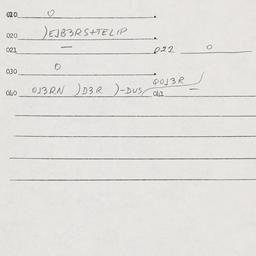 010 0
020 )EJB3RS+TELIP
021 — 022 0
030 0
040 OJ3RN )D3R )-DUS/ QOJ3R /
041 —